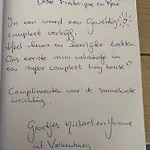 Beste Frederique en
In een woord een Geweldig
compleet verblijf.
Heel schoon en heerlijke bedden.
Ons eerste mini vakantie in
een super compleet tiny house
Complimenten voor de
inrichting.
Groetjes Michael en Yvonne
uit Valkenburg